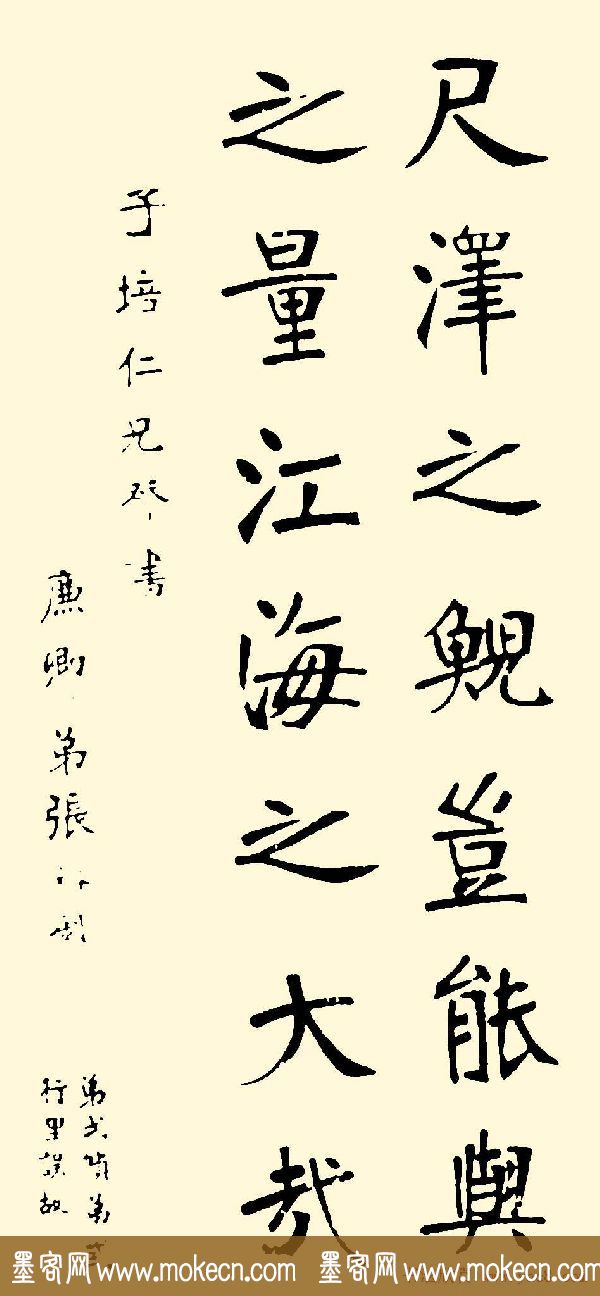 尺澤之鯢豈能與
之量江海之大哉
子培仁兄書
廉卿弟張裕釗
墨客网 www.mokecn.com 墨客网 www.mokecn.com